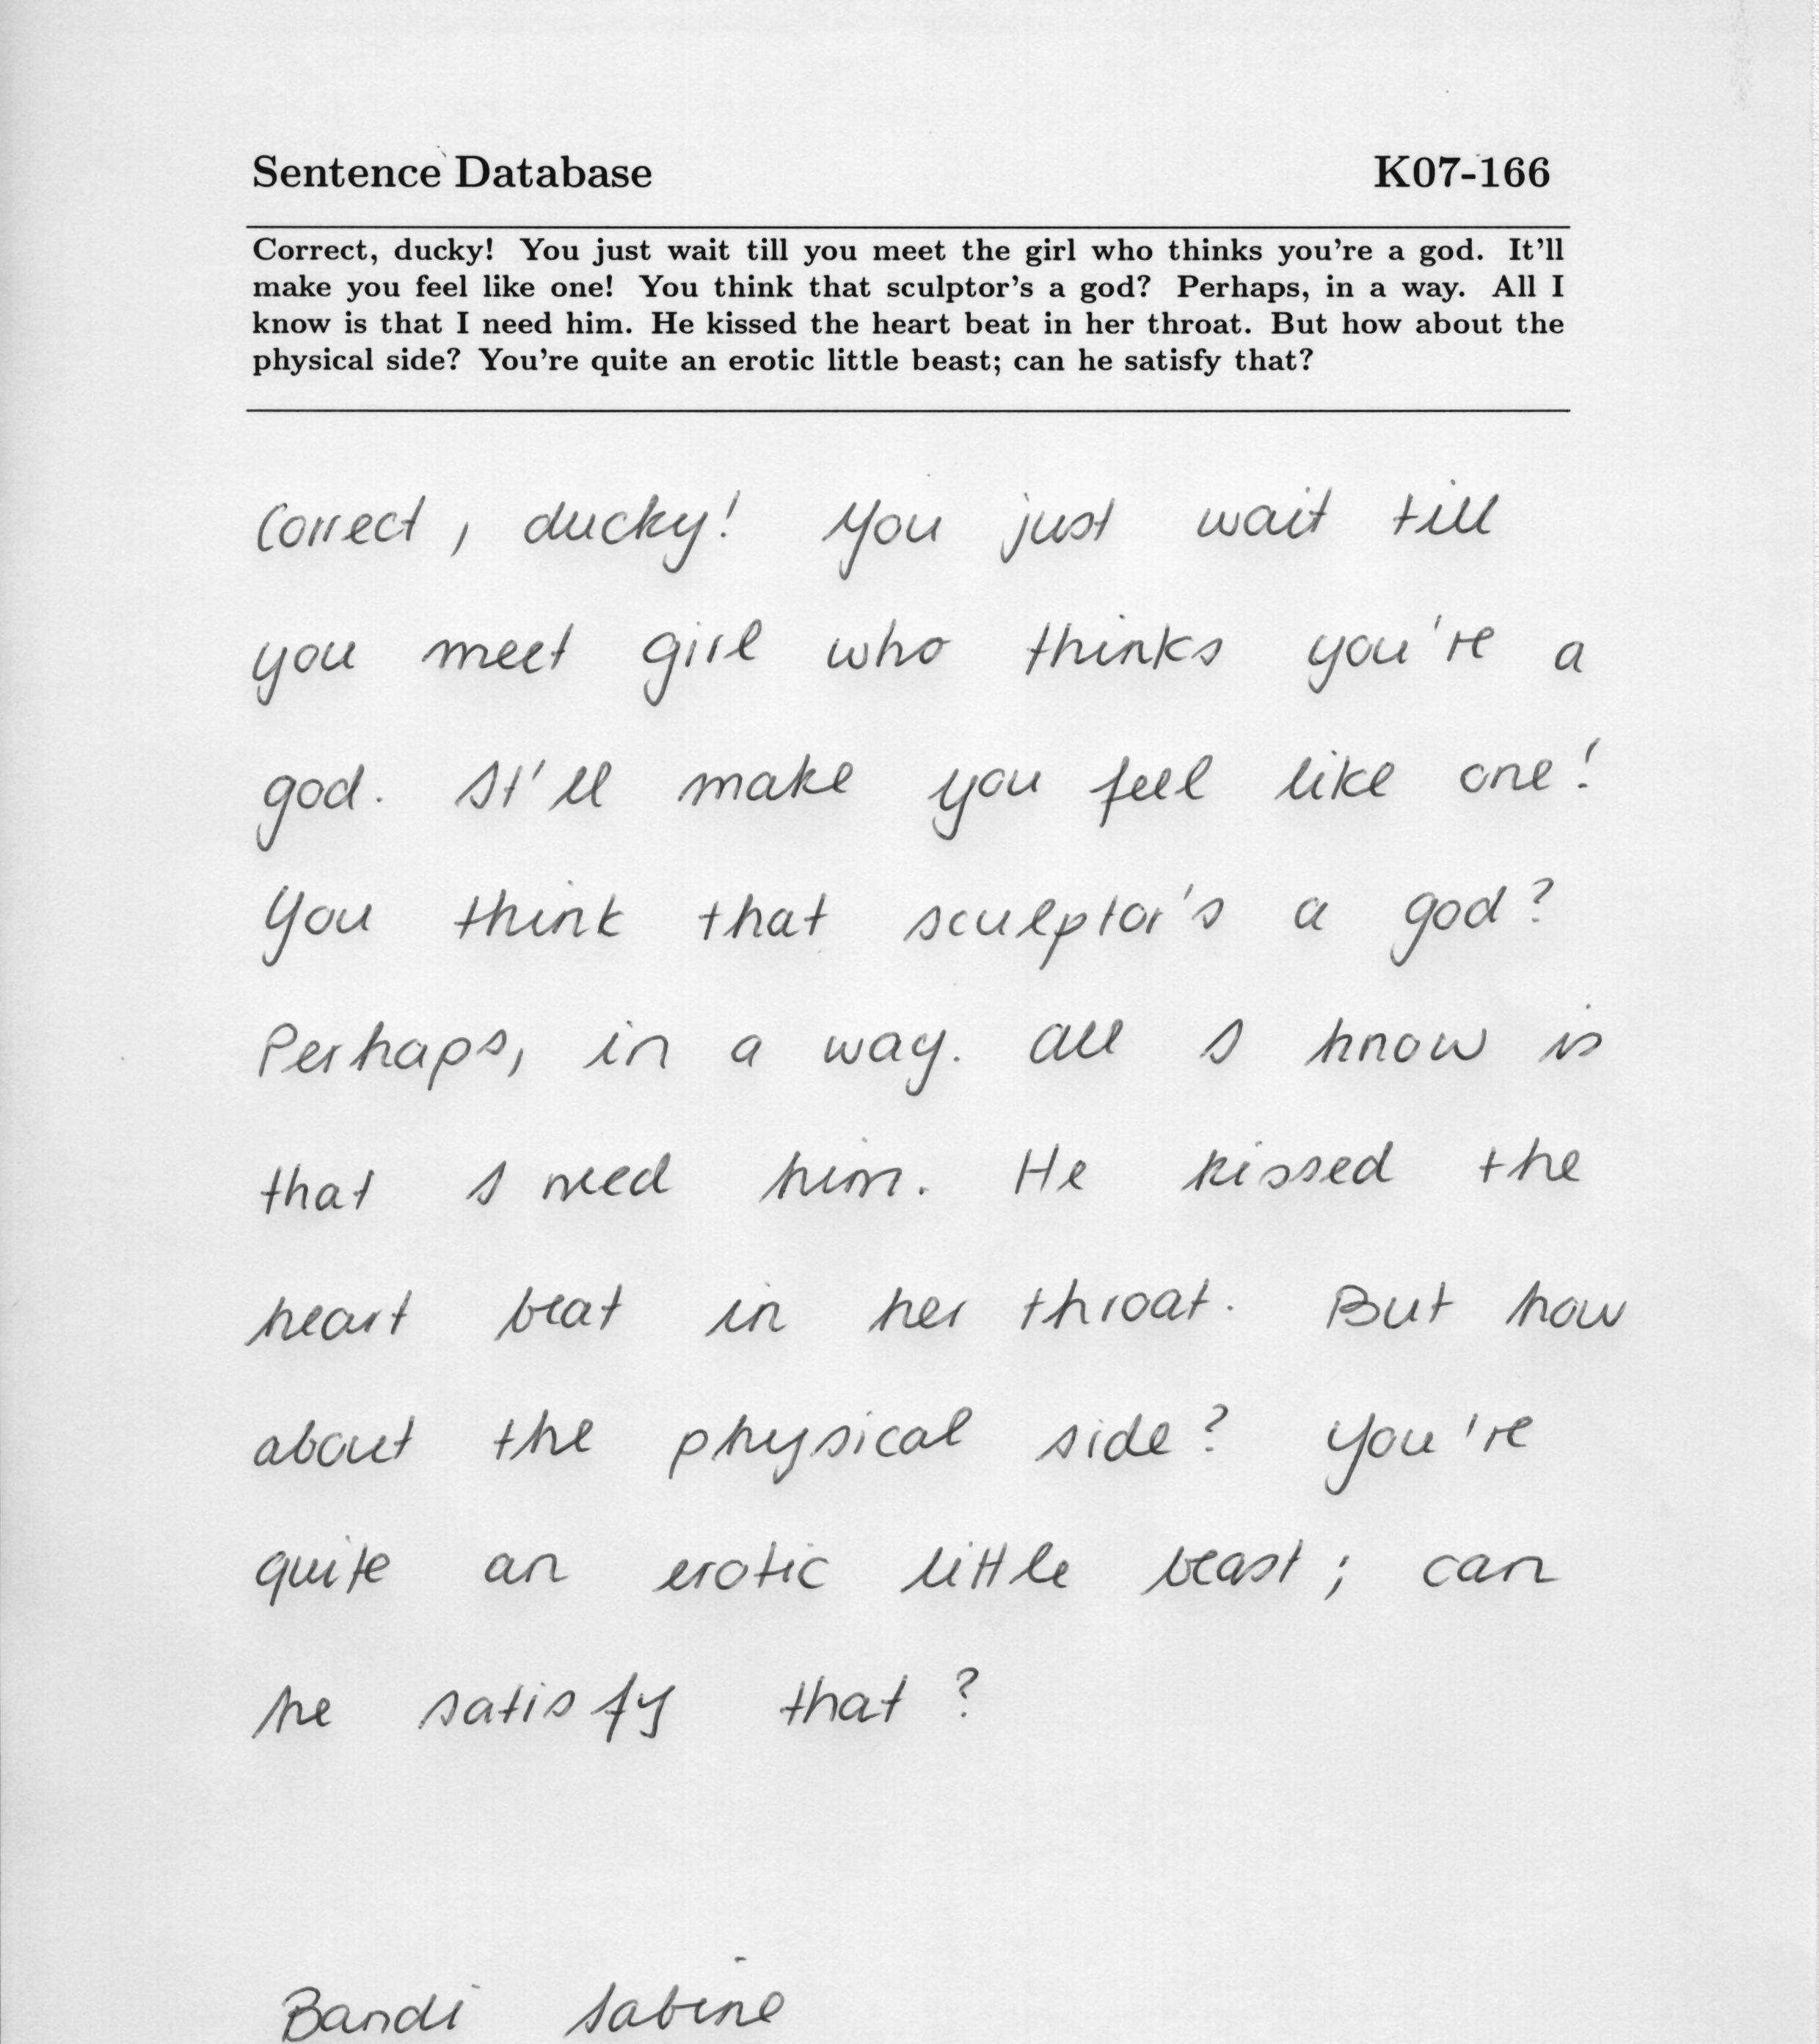 Sentence Database K07-166
Correct, ducky! You just wait till you meet the girl who thinks you're a god. It'll
make you feel like one! You think that sculptor's a god? Perhaps, in a way. All I
know is that I need him. He kissed the heart beat in her throat. But how about the
physical side? You're quite an erotic little beast; can he satisfy that?
Correct, ducky! You just wait till
you meet girl who thinks you're a
god. It'll make you feel like one!
You think that sculptor's a god?
Perhaps, in a way. All I know is
that I need him. He kissed the
heart beat in her throat. But how
about the physical side? You're
quite an erotic little beast; can
he satisfy that?
Bandi Sabine